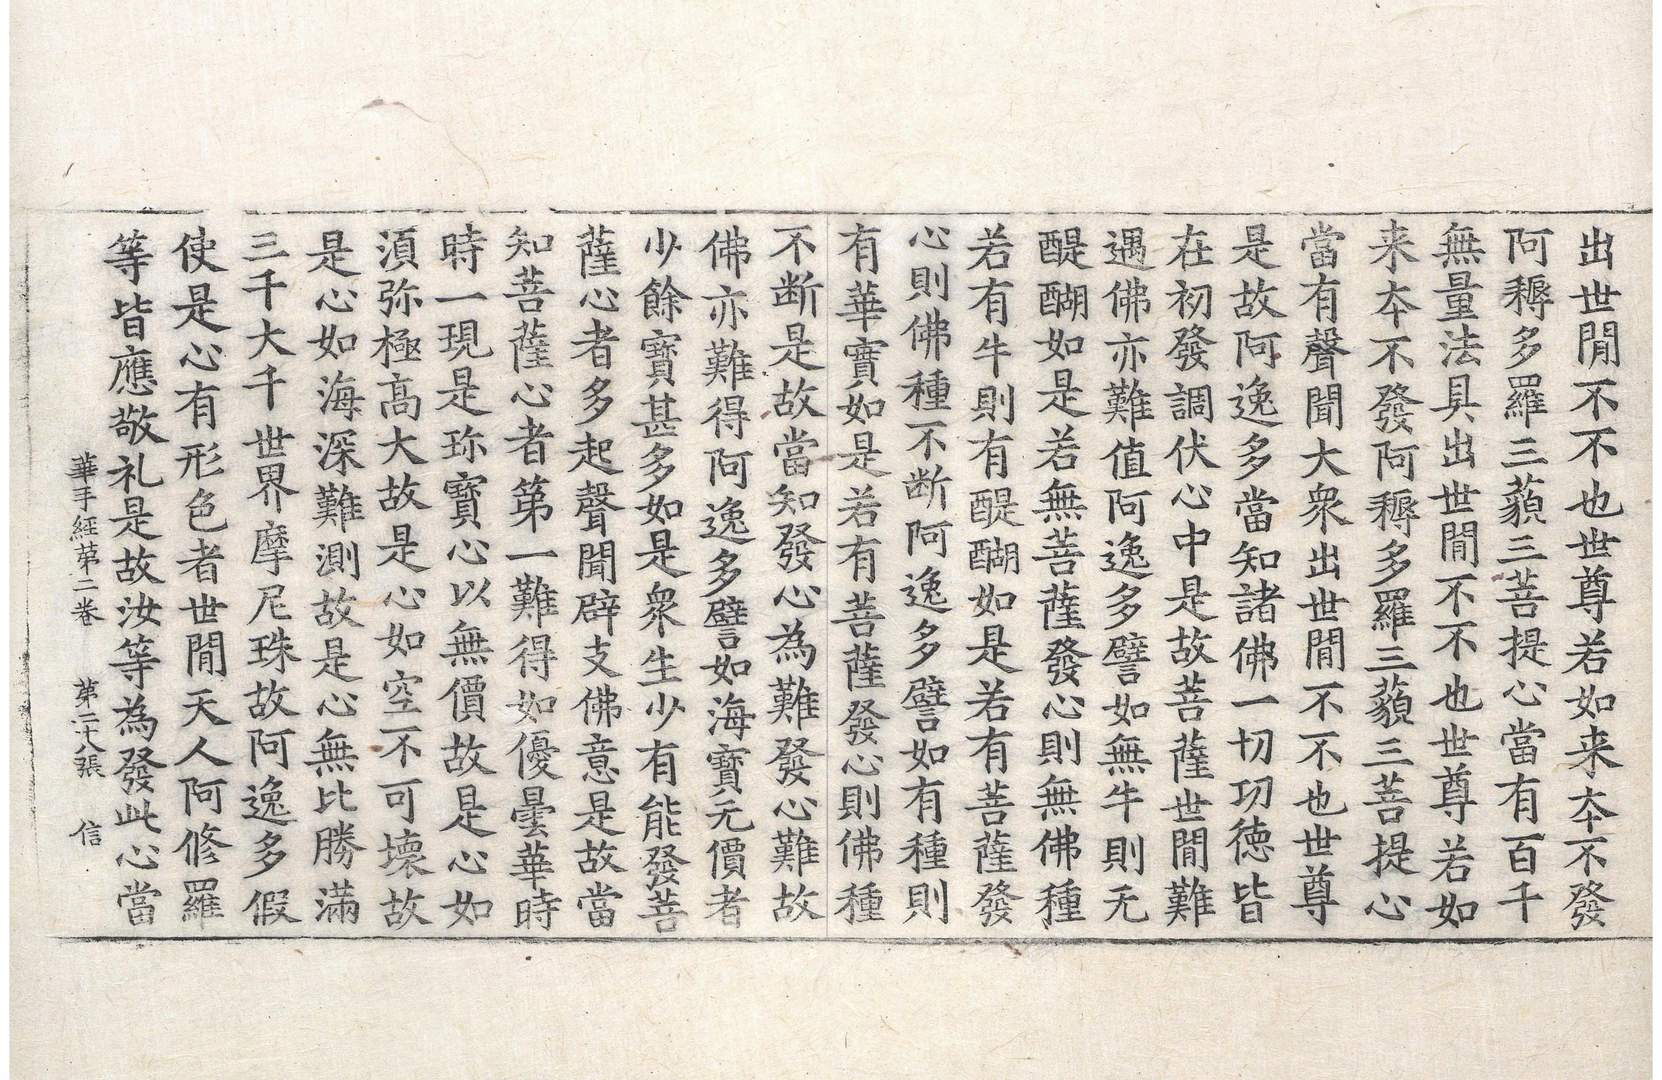 出世閒不不也世尊若如来夲不發
阿耨多羅三藐三菩提心當有百千
無量法具出世閒不不也世尊若如
来夲不發阿耨多羅三藐三菩提心
當有聲聞大衆出世閒不不也世尊
是故阿逸多當知諸佛一切功徳皆
在初發調伏心中是故菩薩世閒難
遇佛亦難值阿逸多譬如無牛則无
醍醐如是若無菩薩發心則無佛種
若有牛則有醍醐如是若有菩薩發
心則佛種不断阿逸多譬如有種則
有華實如是若有菩薩發心則佛種
不断是故當知發心為難發心難故
佛亦難得阿逸多譬如海寶无價者
少餘寶甚多如是衆生少有能發菩
薩心者多起聲聞辟支佛意是故當
知菩薩心者第一難得如優曇華時
時一現是珎寶心以無價故是心如
湏弥極高大故是心如空不可壞故
是心如海深難測故是心無比勝滿
三千大千世界摩尼珠故阿逸多假
使是心有形色者世閒天人阿修羅
等皆應敬礼是故汝等為發此心當
華手經苐二卷 第二十八張 信